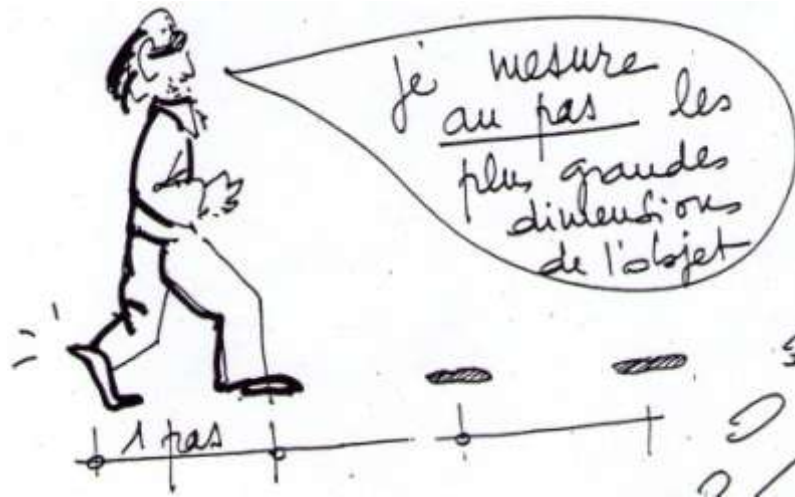 je mesure
au pas les
plus grandes
dimensions
de l'objet
1 pas